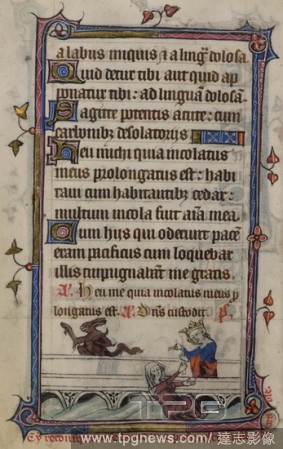 a labiis iniquis ⁊ a lingua dolosa.
Quid detur tibi aut quid ap
ponatur tibi: ad linguam dolosam.
Sagitte potentis acute: cum
carbonibȝ desolatoriis
Heu michi quia incolatus
meus prolongatus est: habi
taui cum habitantibȝ cedar:
multum incola fuit aīa mea
Cum hiis qui oderunt pacē
eram pacificus cum loquebar
illis inpugnabāt me gratis.
A. Heu me quia incolatus meus p
longatus est. A. Dn̄s custodit
TPG
www.tpgnews.com/達志影像